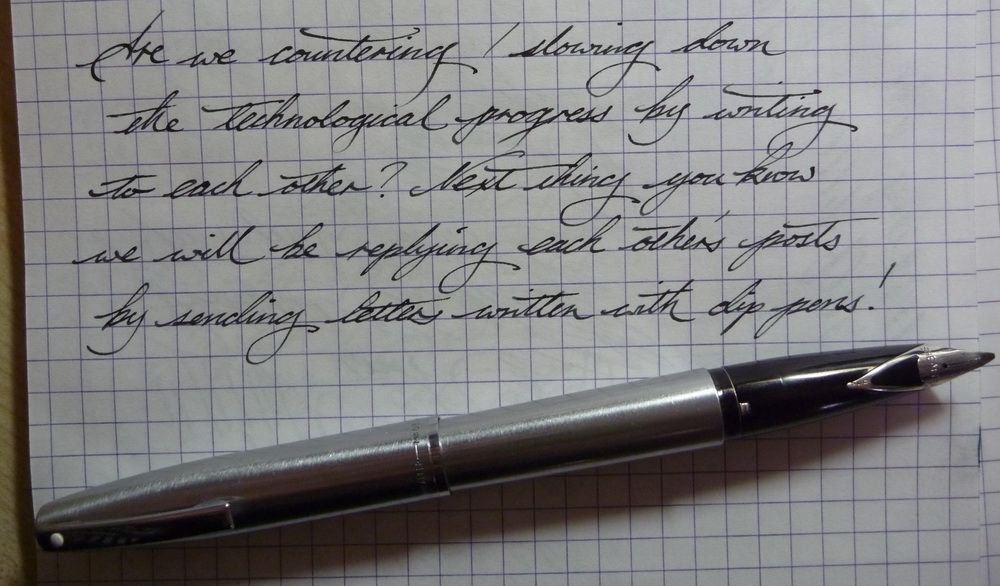 Are we countering / slowing down
the technological progress by writing
to each other? Next thing you know
we will be replying each other's posts
by sending letters written with dip pens!